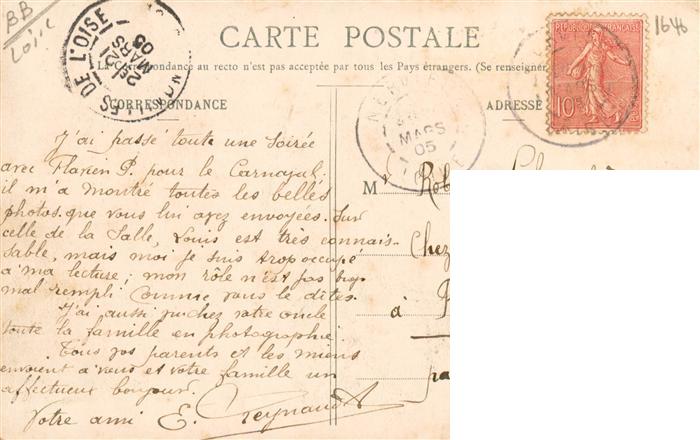 BB
1646
NOAILLES DE L'OISE
21
MARS
05
CARTE POSTALE
La Correspondance au recto n'est pas acceptée par tous les Pays étrangers. (Se renseigner
REPUBLIQUE FRANÇAISE
10
CORRESPONDANCE
ADRESSE
MARS
05
J'ai passé toute une soirée
avec Flavien P. pour le Carnaval.
il m'a montré toutes les belles
photos que vous lui avez envoyées. Sur
celle de la Salle, Louis est très connais-
sable, mais moi je suis trop occupé
à ma lecture; mon rôle n'est pas trop
mal rempli comme vous le dîtes.
J'ai aussi vu chez votre oncle
toute la famille en photographie.
Tous vos parents et les miens
envoient à vous et votre famille un
affectueux bonjour.
Votre ami E. Reynaud
Mr Rob
Chez
à
pa